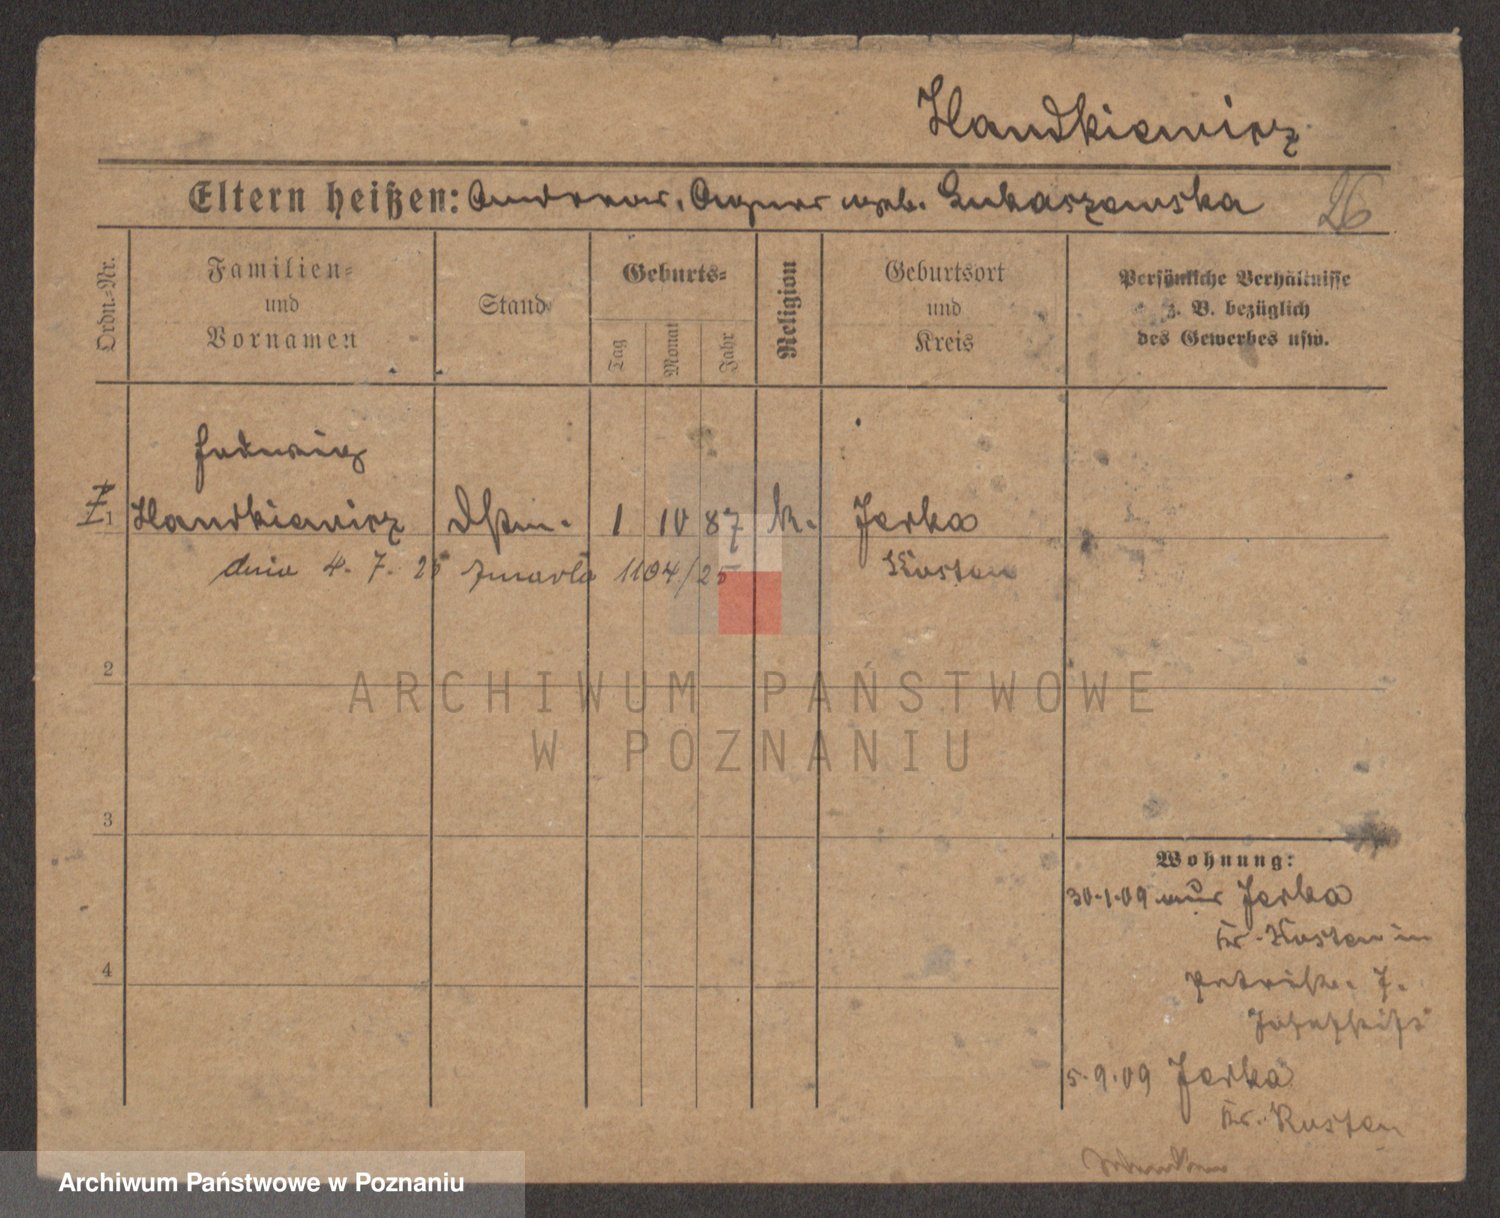 Handkiewicz
Eltern heißen: Andreas, Agnes geb. Lukaszewska
26
Ordn.-Nr.
Familien-
und
Vornamen
Stand
Geburts-
Tag
Monat
Jahr
Religion
Geburtsort
und
Kreis
Persönliche Verhältnisse
z. B. bezüglich
des Gewerbes usw.
Hedwig
1 Handkiewicz 1 10 87 k. Jerka
dnia 4. 7. 25 zmarła 1104/25 Kosten
2
ARCHIWUM PAŃSTWOWE
W POZNANIU
3
Wohnung:
30.1.09 aus Jerka
Kr. Kosten in
7.
4
5.9.09 Jerka
Kr. Kosten
Archiwum Państwowe w Poznaniu